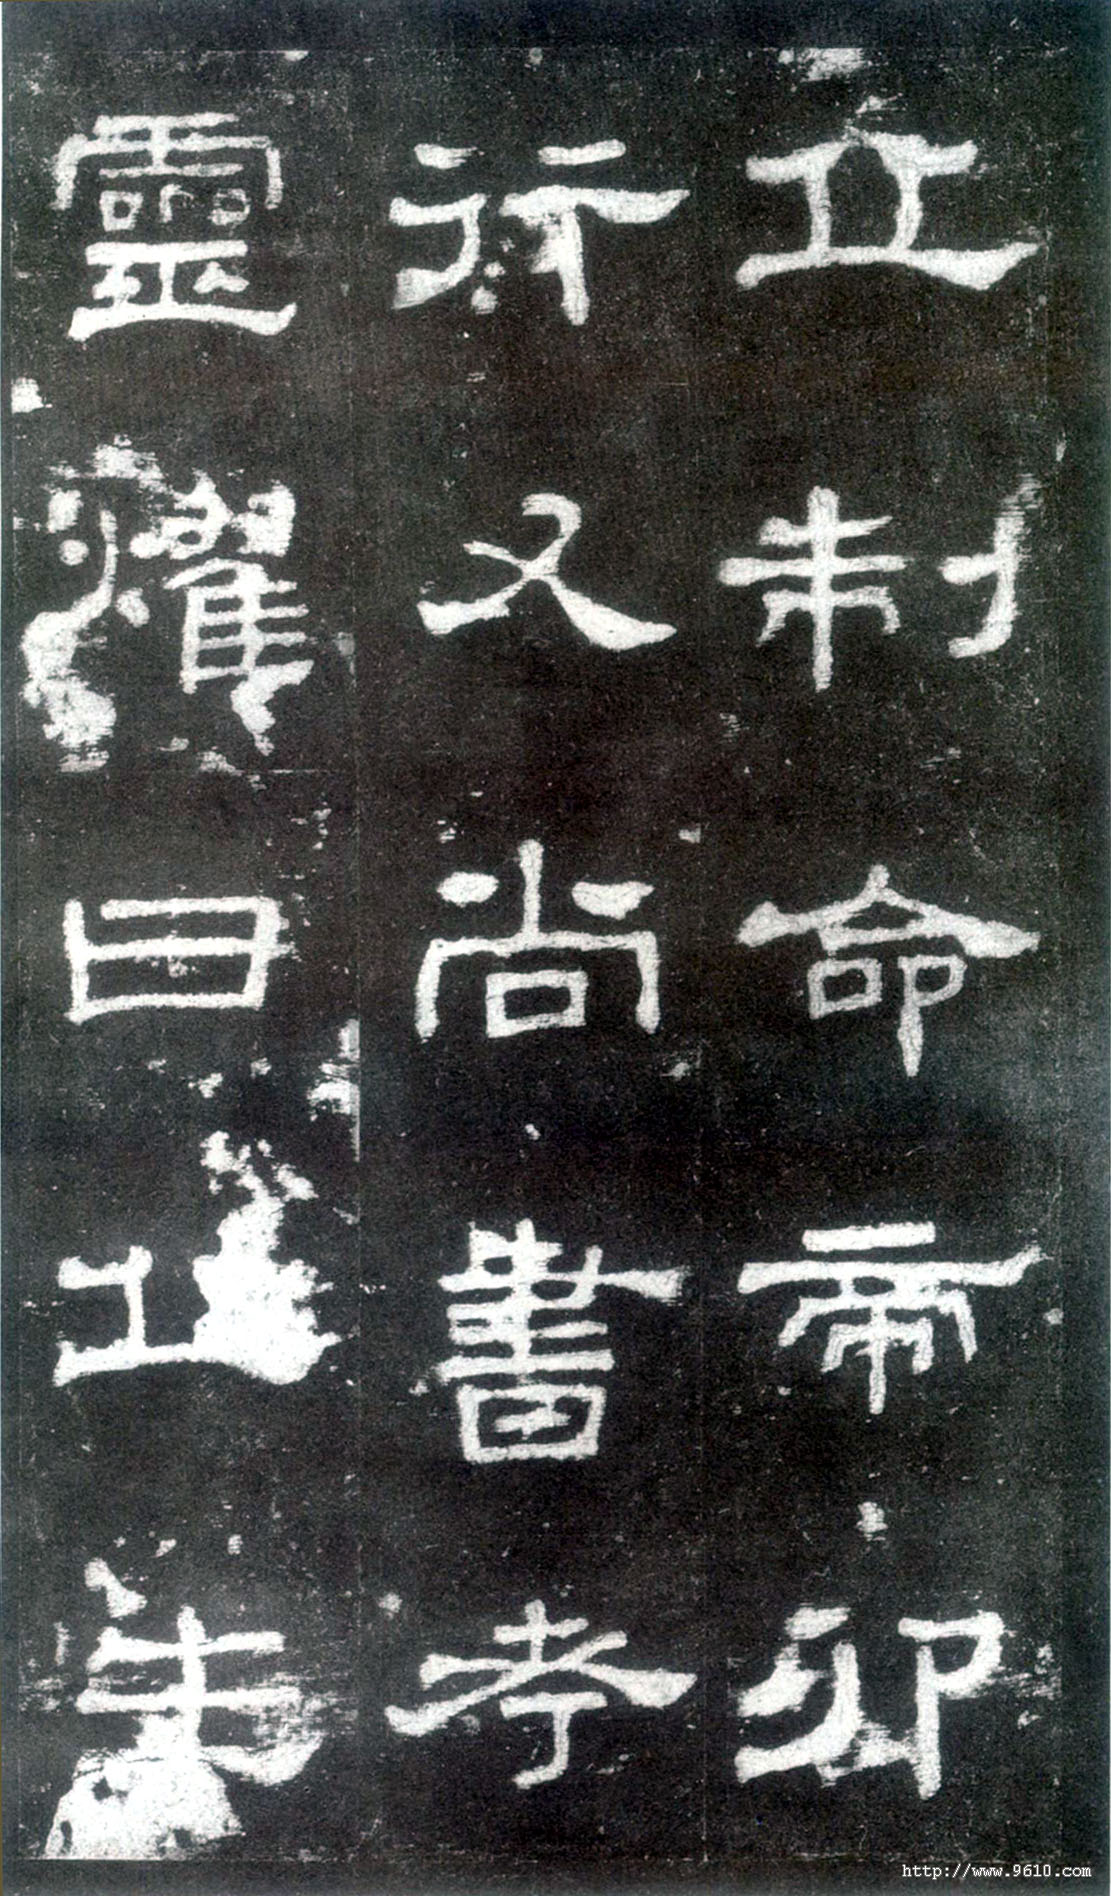 丘制命帝卯
行又尚書考
靈燿曰丘生
http://www.9610.com